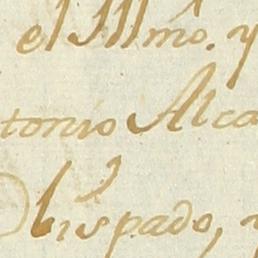 el Illmo. y
tonio Alca
bispado, y